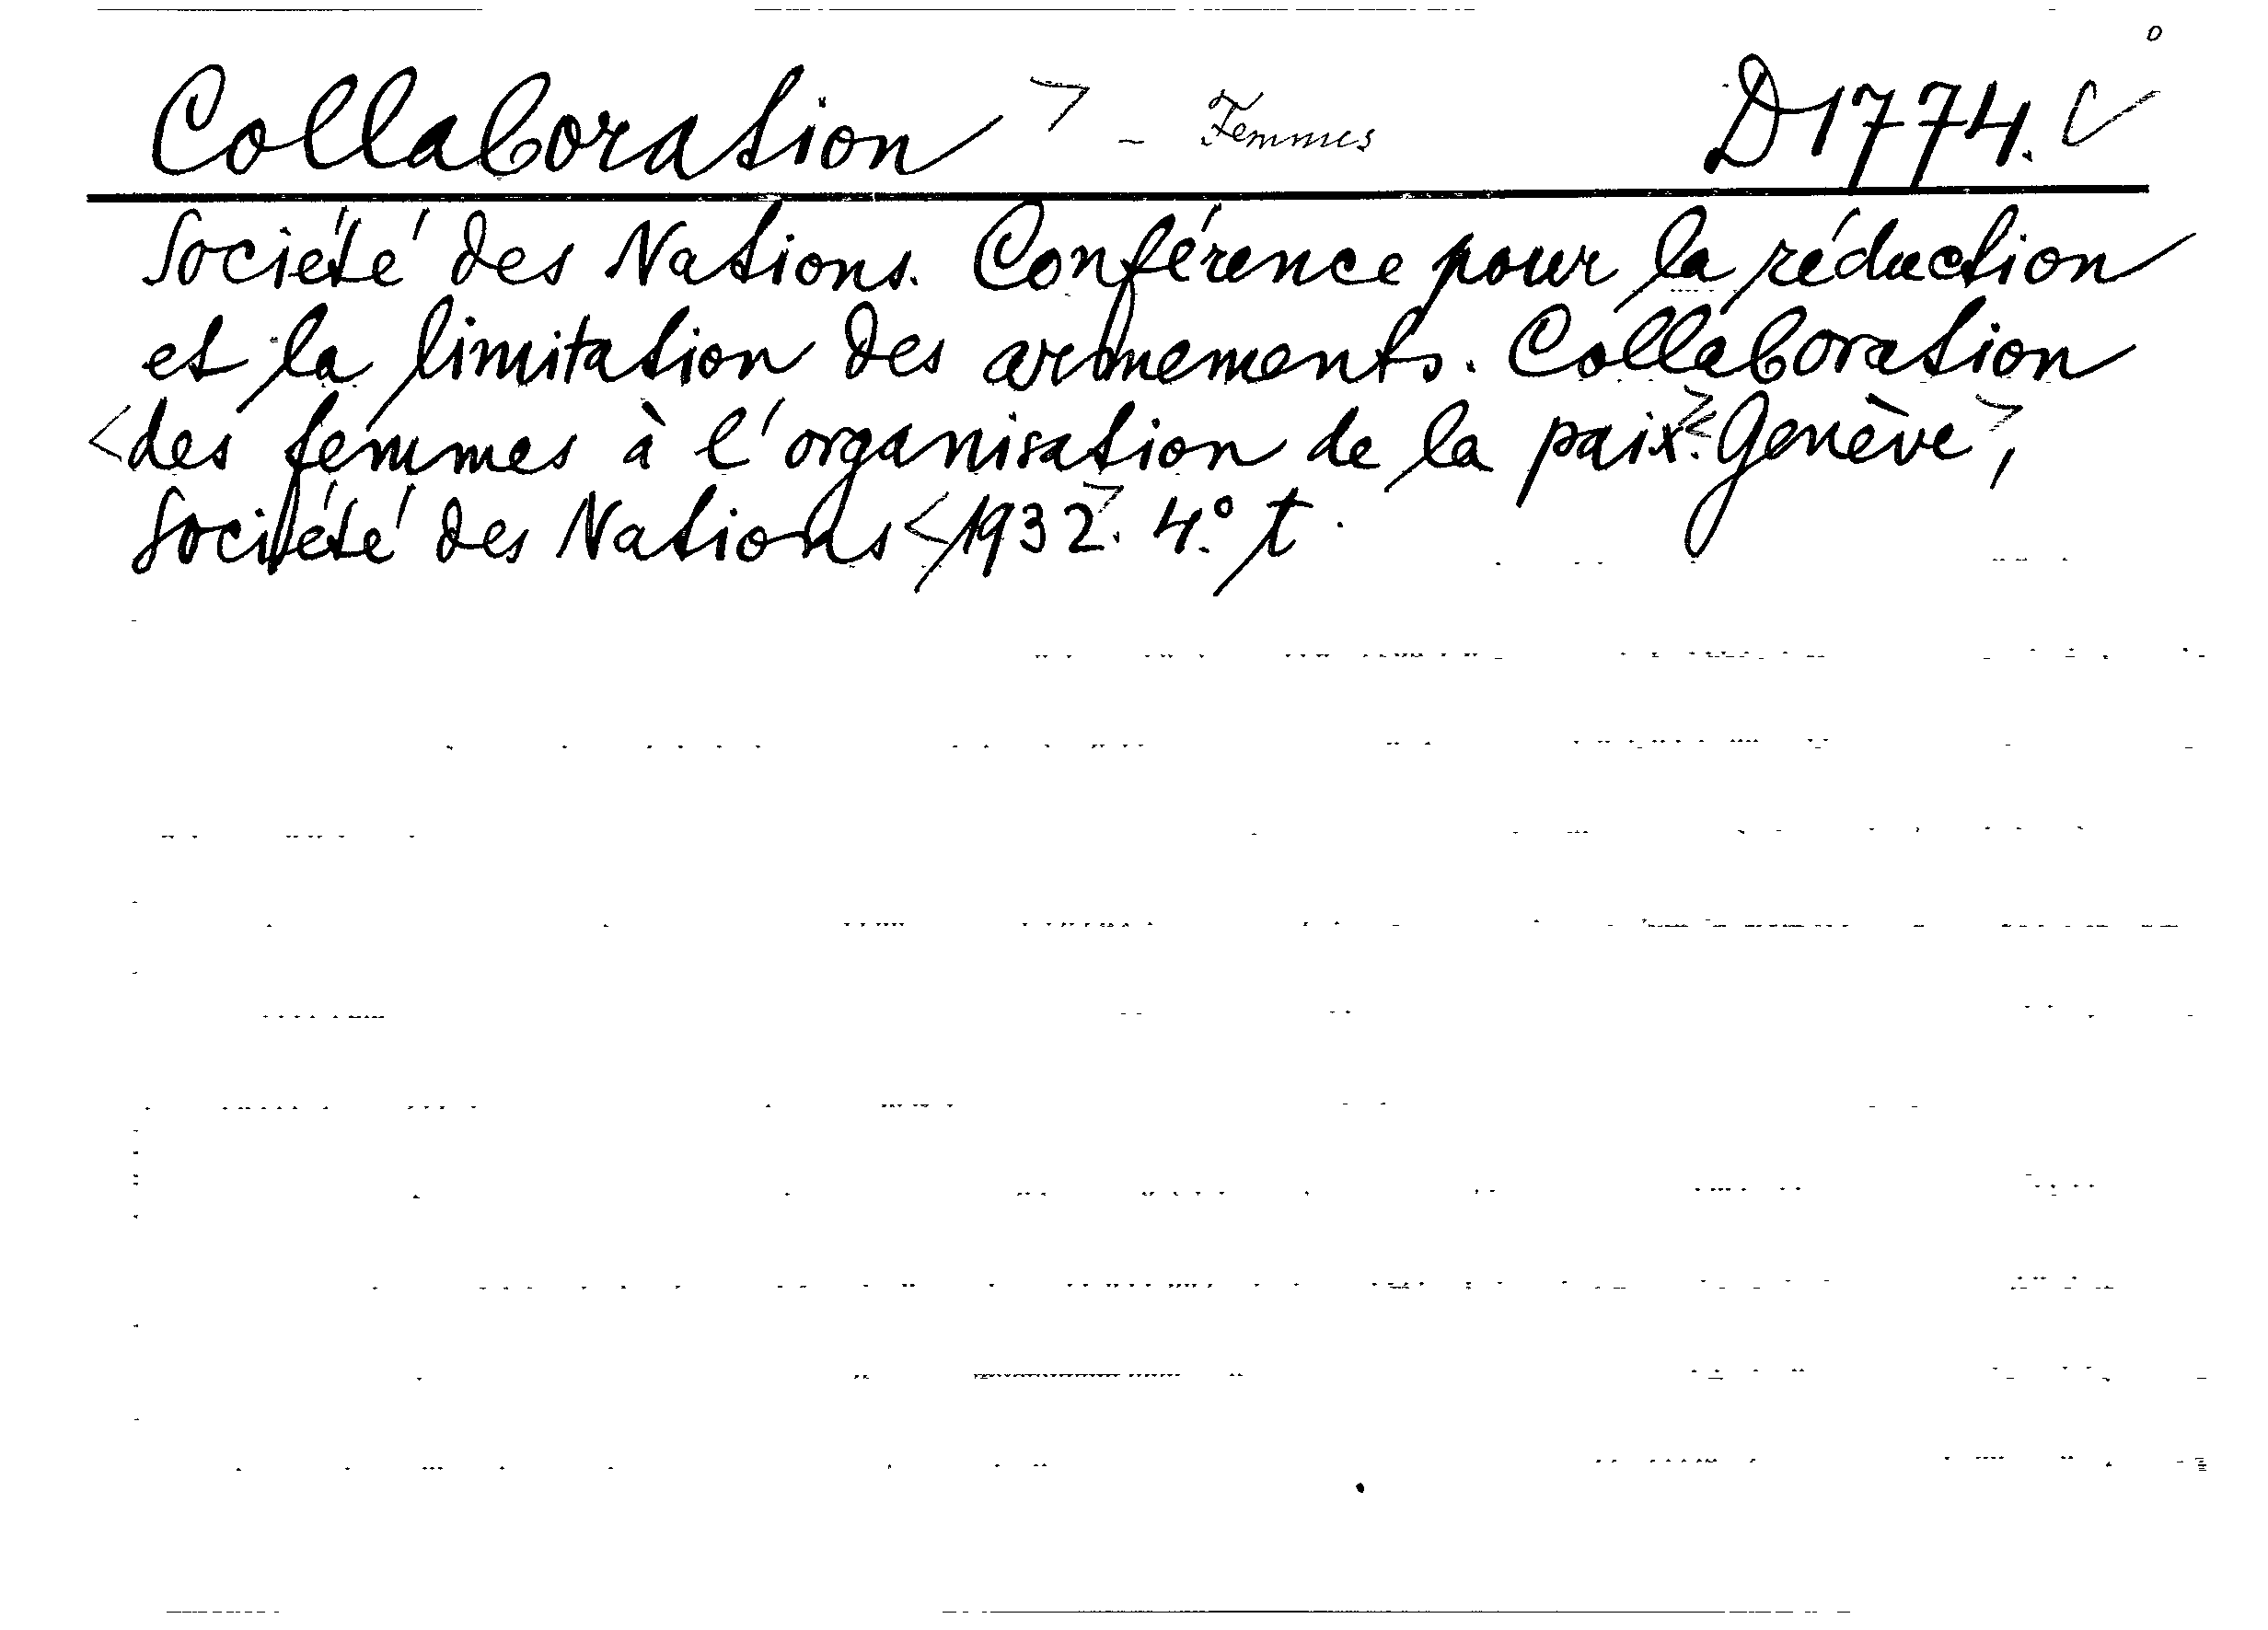 Collaboration > - Femmes D1774. V
Société des Nations. Conférence pour la réduction
et la limitation des armements. Collaboration
<des femmes à l'organisation de la paix>.<Genève>,
Société des Nations <1932>. 4.° t.